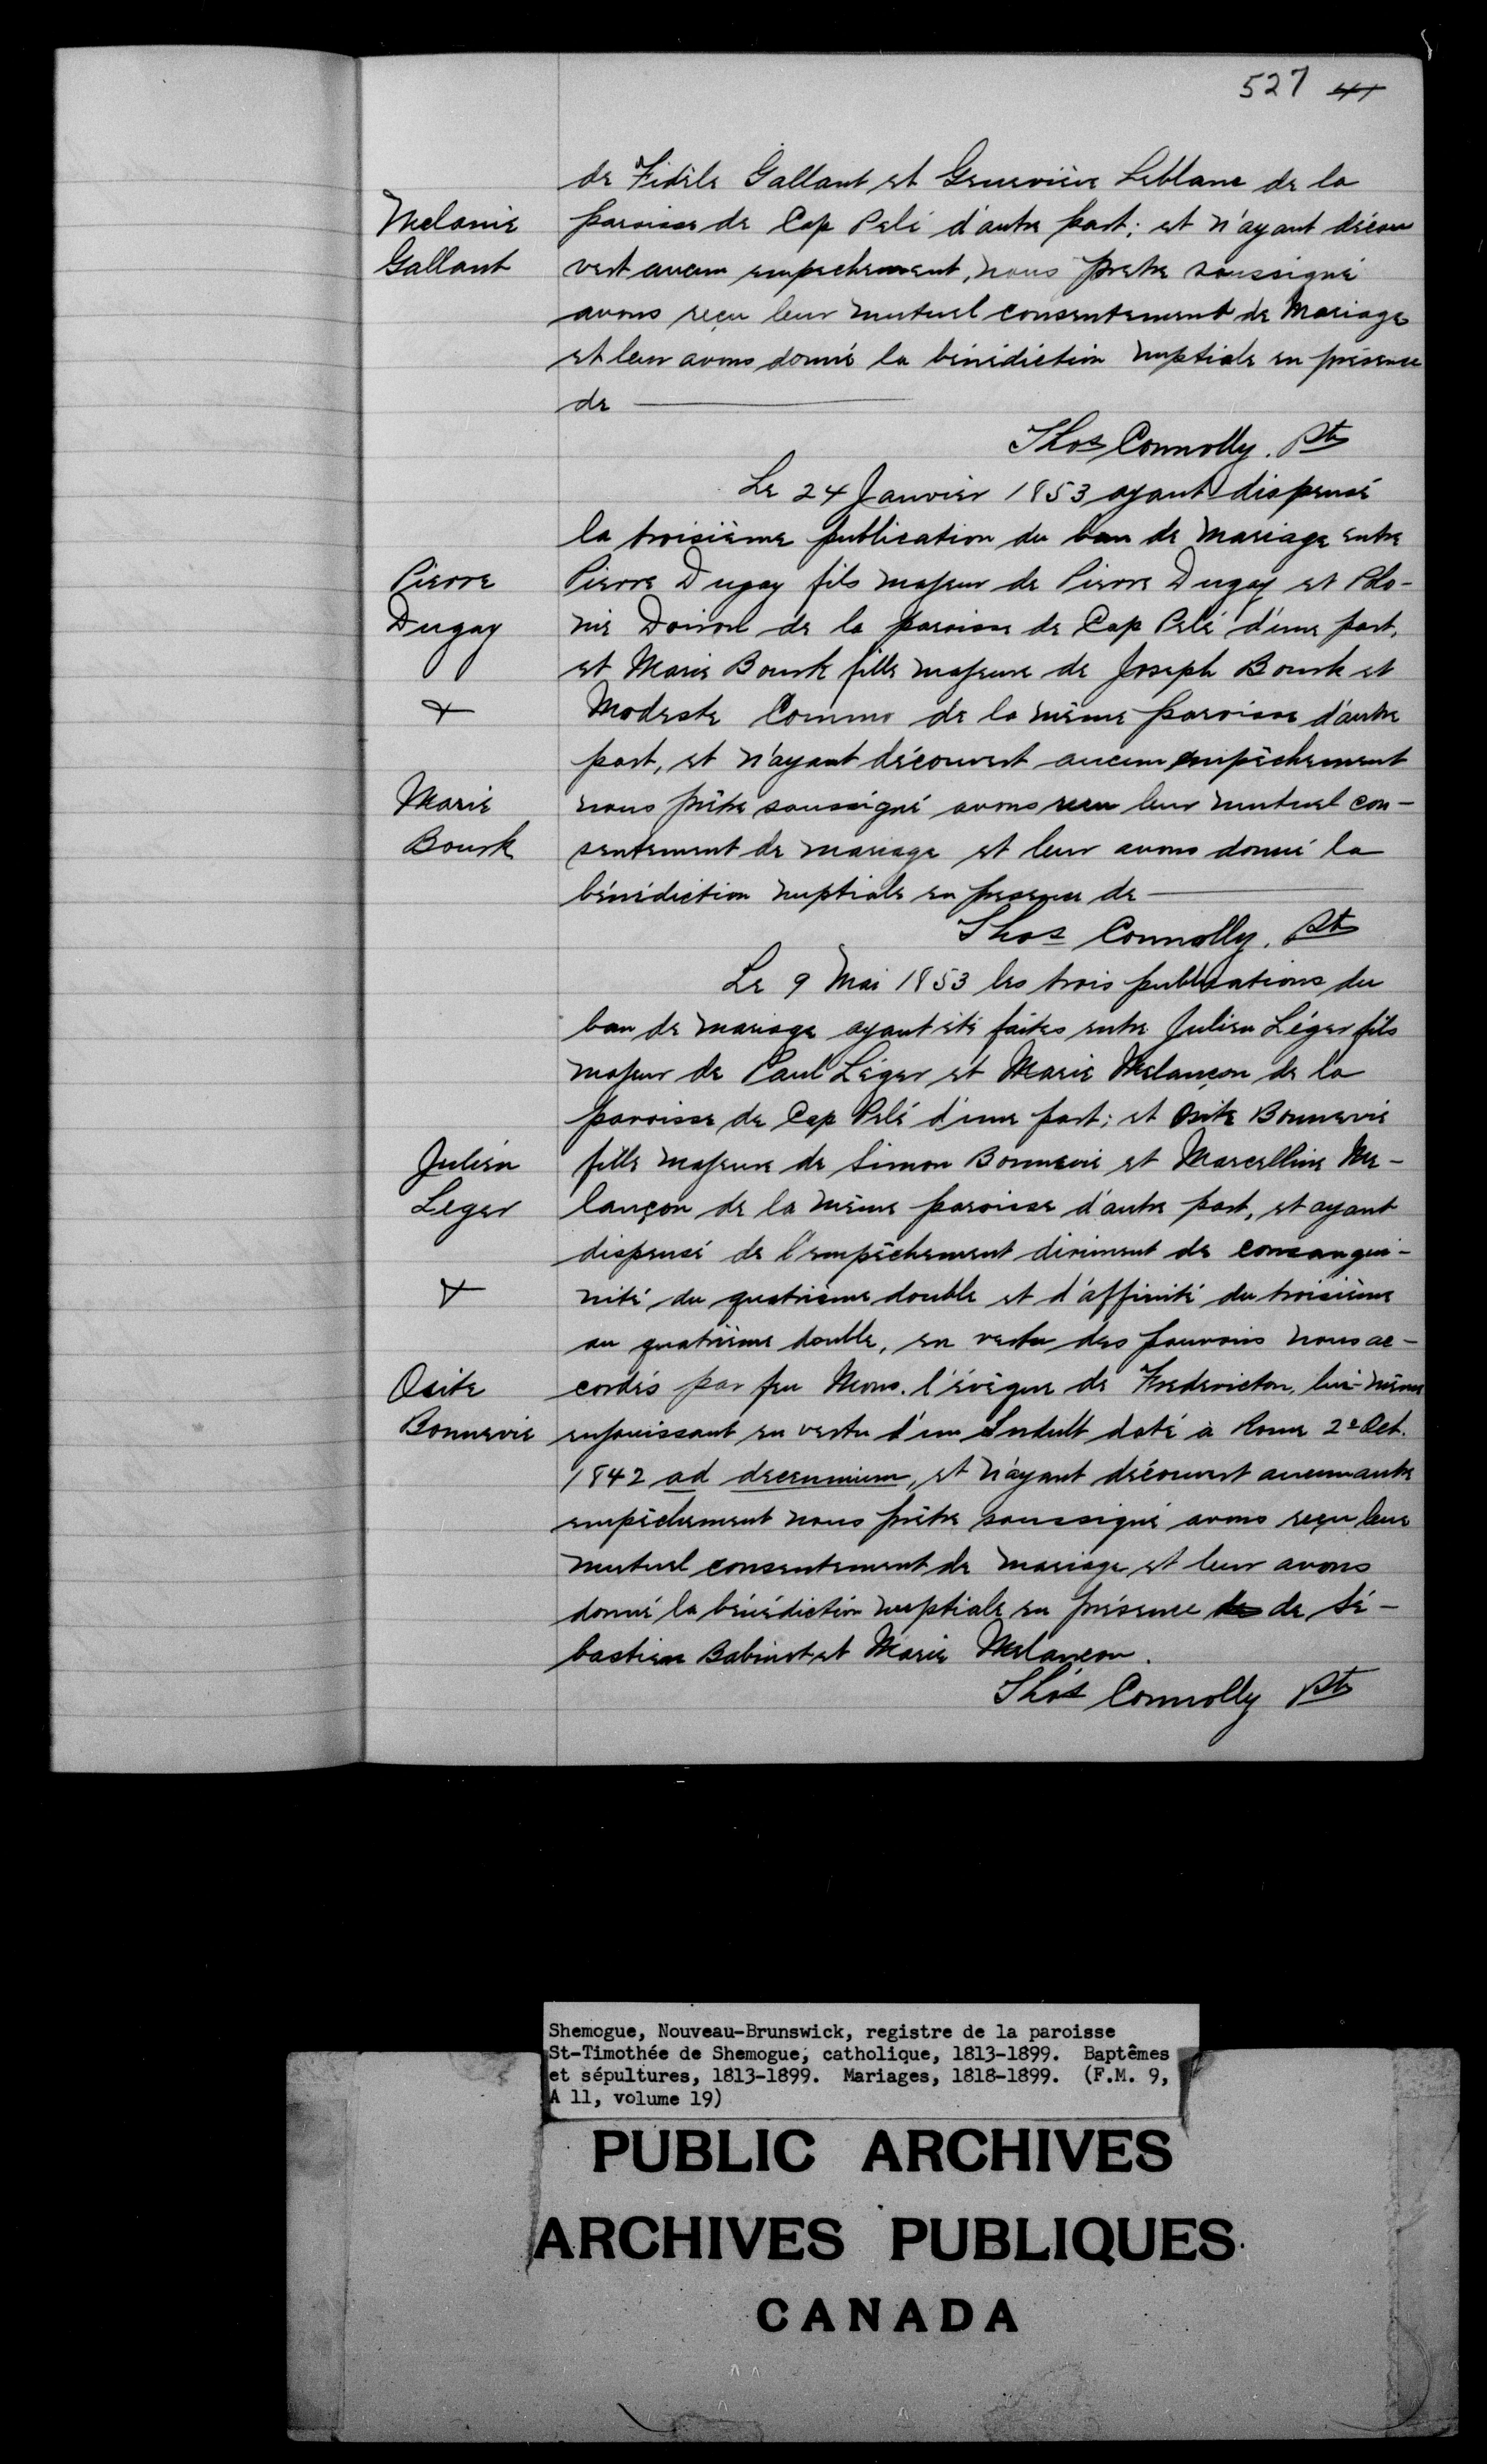 527 41
de Fidèle Gallant et Geneviève Leblanc de la
Melanie
paroisse de Cap Pelé d'autre part; et n'ayant décou
Gallant
vert aucun empechement, nous pretre soussigné
avons reçu leur mutuel consentement de Mariage
et leur avons donné la bénédiction nuptiale en présence
de
Thos Connolly. Pt
Le 24 Janvier 1853 ayant dispensé
la troisième publication du ban de mariage entre
Pierre
Pierre Dugay fils majeur de Pierre Dugay et Polo-
Dugay
nie Doiron de la paroisse de Cap Pelé d'une part,
et Marie Bourk fille majeure de Joseph Bourk et
&
Modeste Commo de la même paroisse d'autre
part, et n'ayant découvert aucun empêchement
Marie
nous prêtre soussigné avons recu leur mutuel con-
Bourk
sentement de mariage et leur avons donné la
bénédiction nuptiale en presence de
Thos Connolly. Pt
Le 9 Mai 1853 les trois publications du
ban de mariage ayant été faites entre Julien Léger fils
majeur de Paul Léger et Marie Melançon de la
paroisse de Cap Pelé d'une part; et Osite Bonnevie
Julien
fille majeure de Simon Bonnevie et Marcelline Me-
Leger
lançon de la même paroisse d'autre part, et ayant
dispensé de l'empêchement diriment de consangui-
&
nité du quatrième double et d'affinité du troisième
au quatrième double, en vertu des pouvoirs nous ac-
Osite
cordés par feu Mons. l'évêque de Fredericton, lui-même
Bonnevie
enjouissant en vertu d'un Indult daté à Rome 2e Oct.
1842 ad decennium, et n'ayant découvert aucun autre
empêchement nous prêtre soussigné avons reçu leur
mutuel consentement de mariage et leur avons
donné la bénédiction nuptiale en présence de de Sé-
bastien Babinot et Marie Melancon.
Thos Connolly Pt
Shemogue, Nouveau-Brunswick, registre de la paroisse
St-Timothée de Shemogue, catholique, 1813-1899. Baptêmes
et sépultures, 1813-1899. Mariages, 1818-1899. (F.M. 9,
A 11, volume 19)
PUBLIC ARCHIVES
ARCHIVES PUBLIQUES
CANADA